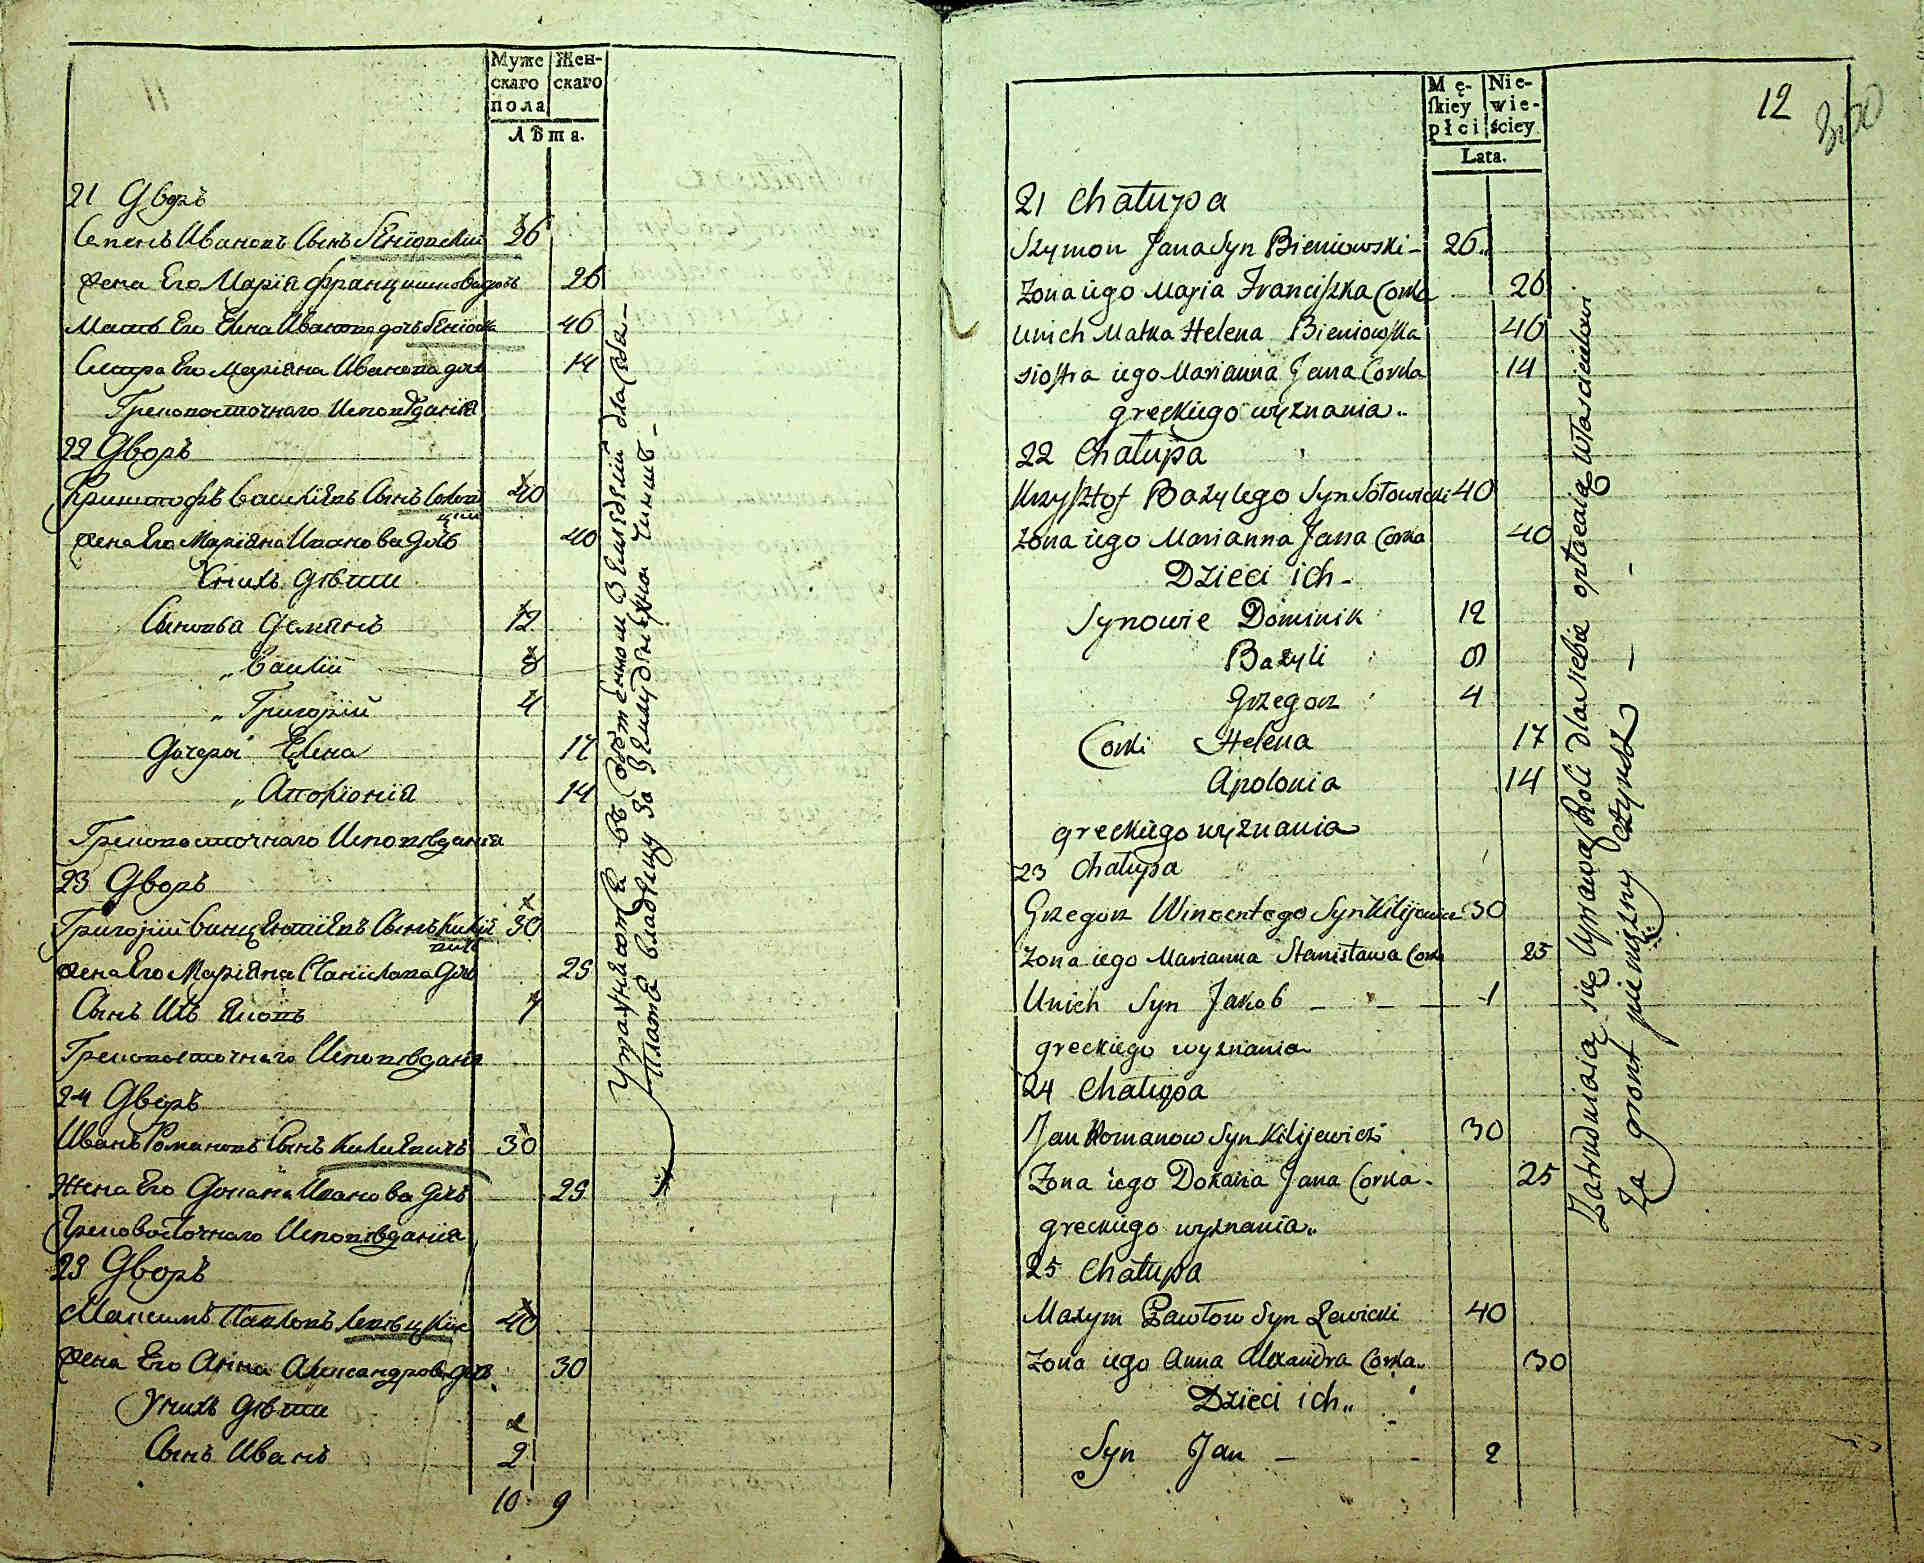 Муже
скаго
пола
Жен-
скаго
Лѣта.
21 Дворъ
Семенъ Ивановъ Сынъ Бѣнїовскїй 26
Жена Его Марїя Францишкова дочь 26
Мать Его Елена Иванова дочь Бѣнїовска 46
Сестра Его Марїяна Иванова дочь 14
Грековосточнаго Исповѣданїя
22 Дворъ
Криштофъ Василїевъ Сынъ Соловицкїй 40
Жена Его Марїяна Иванова Дочь 40
У нихъ дѣти
Сыновья Демянъ 12
„ Василїй 8
„ Григорїй 4
Дочери Елена 17
„ Аполонїя 14
Грековосточнаго Исповѣданїя
23 Дворъ
Григорїй Винцентїевъ Сынъ Килїевичъ 30
Жена Его Марїяна Станислава Дочь 25
Сынъ Ихъ Яковъ 1
Грековосточнаго Исповѣданїя
24 Дворъ
Иванъ Романовъ Сынъ Килиевичъ 30
Жена Его Доманя Иванова Дочь 25
Грековосточнаго Исповѣданїя
25 Дворъ
Максимъ Павловъ Левицкїй 40
Жена Его Анна Александрова дочь 30
У нихъ Дѣти
Сынъ Иванъ 2
10 9
Упражняются въ собственном Земледелїи для себя
Платя владельцу за Землю денежный Чиншъ
12
Mę-
skiey
płci
Nie-
wie-
ściey
Lata.
21 Chałupa
Szymon Jana Syn Bieniowski 26
Zona iego Marja Franciszka Corka 26
Unich Matka Helena Bieniowska 46
siostra iego Marianna Jana Corka 14
greckiego wyznania
22 Chałupa
Krzysztof Bazylego Syn Sołowicki 40
Zona iego Marianna Jana Corka 40
Dzieci ich
Synowie Dominik 12
Bazyli 8
Grzegorz 4
Corki Helena 17
Apolonia 14
greckiego wyznania
23 Chałupa
Grzegorz Wincentego Syn Kilijewicz 30
Zona iego Marianna Stanisława Corka 25
Unich Syn Jakob 1
greckiego wyznania
24 Chałupa
Jan Romanow Syn Kilijewicz 30
Zona iego Domania Jana Corka 25
greckiego wyznania
25 Chałupa
Maxym Pawłow Syn Lewicki 40
Zona iego Anna Alexandra Corka 30
Dzieci ich
Syn Jan 2
Zatrudniaią się Uprawą Roli dla siebie opłacaią Włascicielowi
Za gront pieniezny czynsz